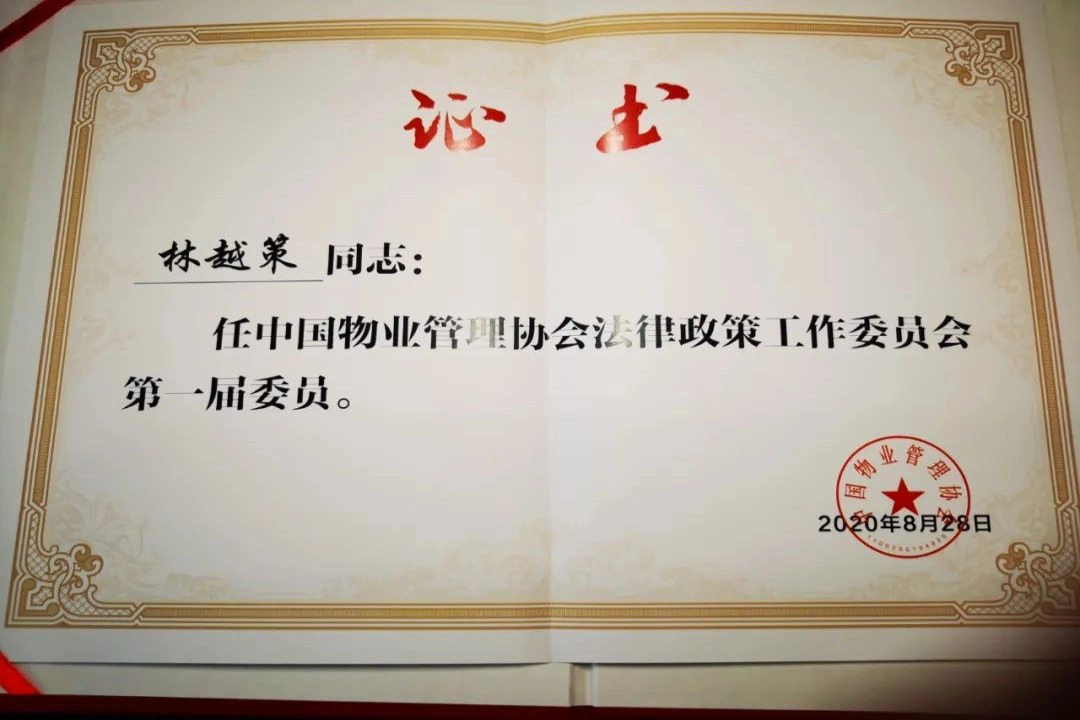 证书
林越策 同志：
任中国物业管理协会法律政策工作委员会
第一届委员。
中国物业管理协会
2020年8月28日